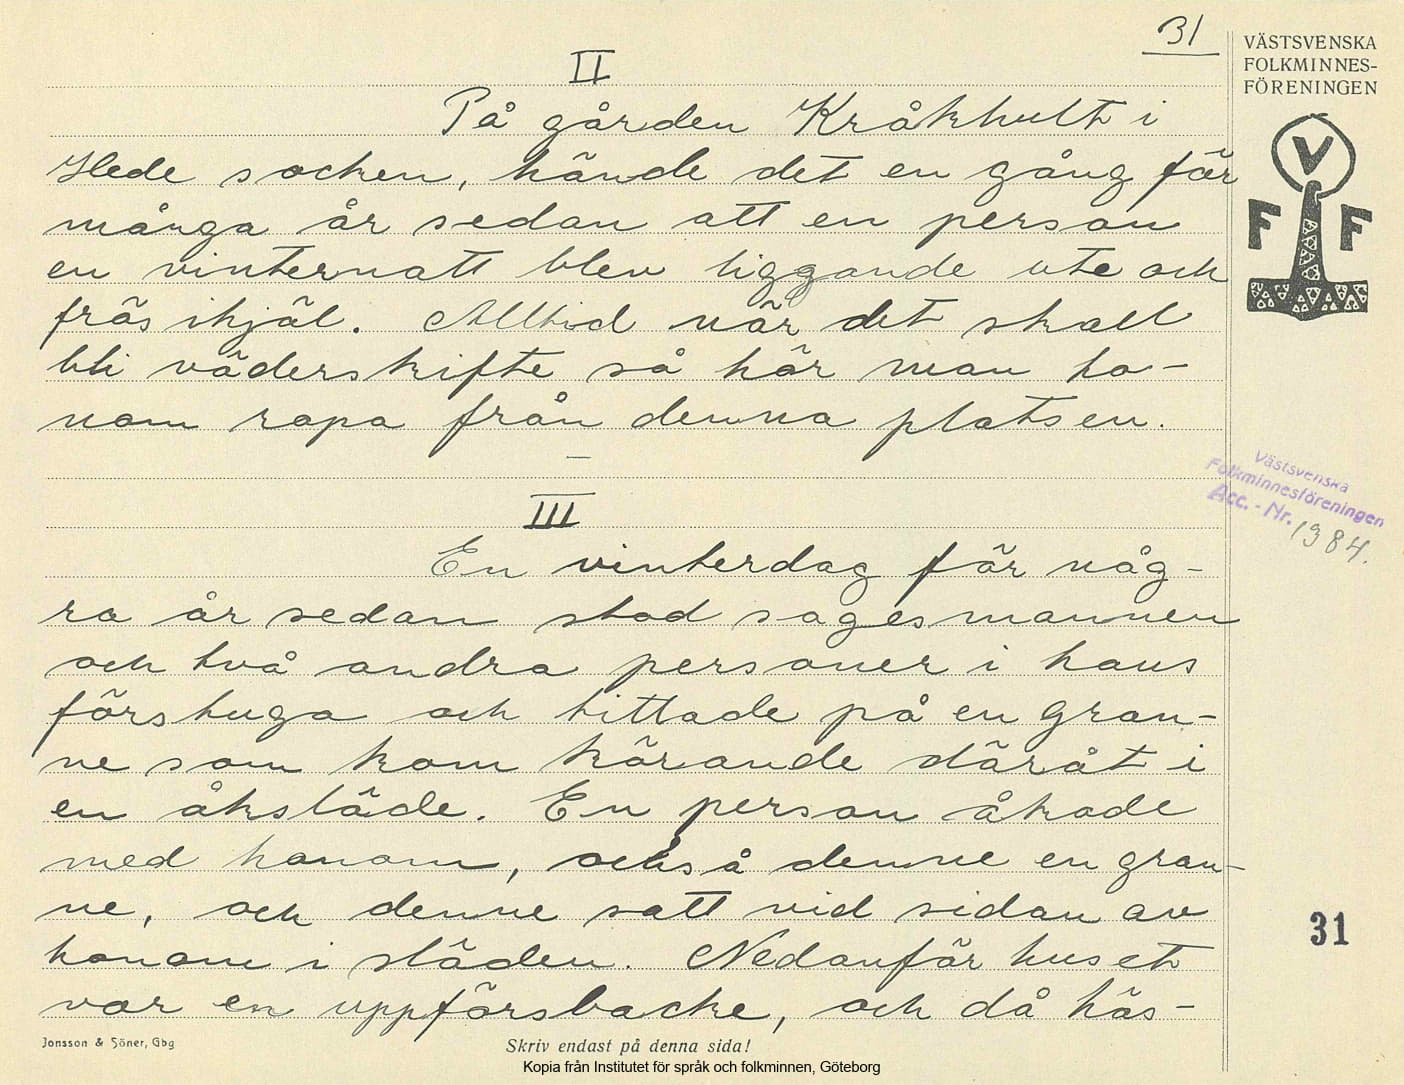 31
VÄSTSVENSKA
FOLKMINNES-
FÖRENINGEN
V
F F
II
På gården Kråkhult i
Hede socken, hände det en gång för
många år sedan att en person
en vinternatt blev liggande ute och
frös ihjäl. Alltid när det skall
bli väderskifte så hör man ho-
nom ropa från denna platsen.
Västsvenska
Folkminnesföreningen
Acc. - Nr. 1384.
III
En vinterdag för någ-
ra år sedan stod sagesmannen
och två andra personer i hans
förstuga och tittade på en gran-
ne som kom körande däråt i
en åkslåde. En person åkade
med honom, också denne en gran-
ne, och denne satt vid sidan av
honom i släden. Nedanför huset
var en uppförsbacke, och då häs-
31
Jonsson & Söner, Gbg
Skriv endast på denna sida!
Kopia från Institutet för språk och folkminnen, Göteborg